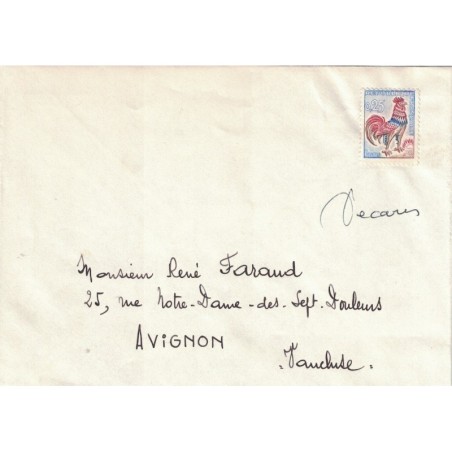 0,25
Decaris
Monsieur René Faraud
25, rue Notre-Dame-des-Sept-Douleurs
AVIGNON
-Vaucluse-